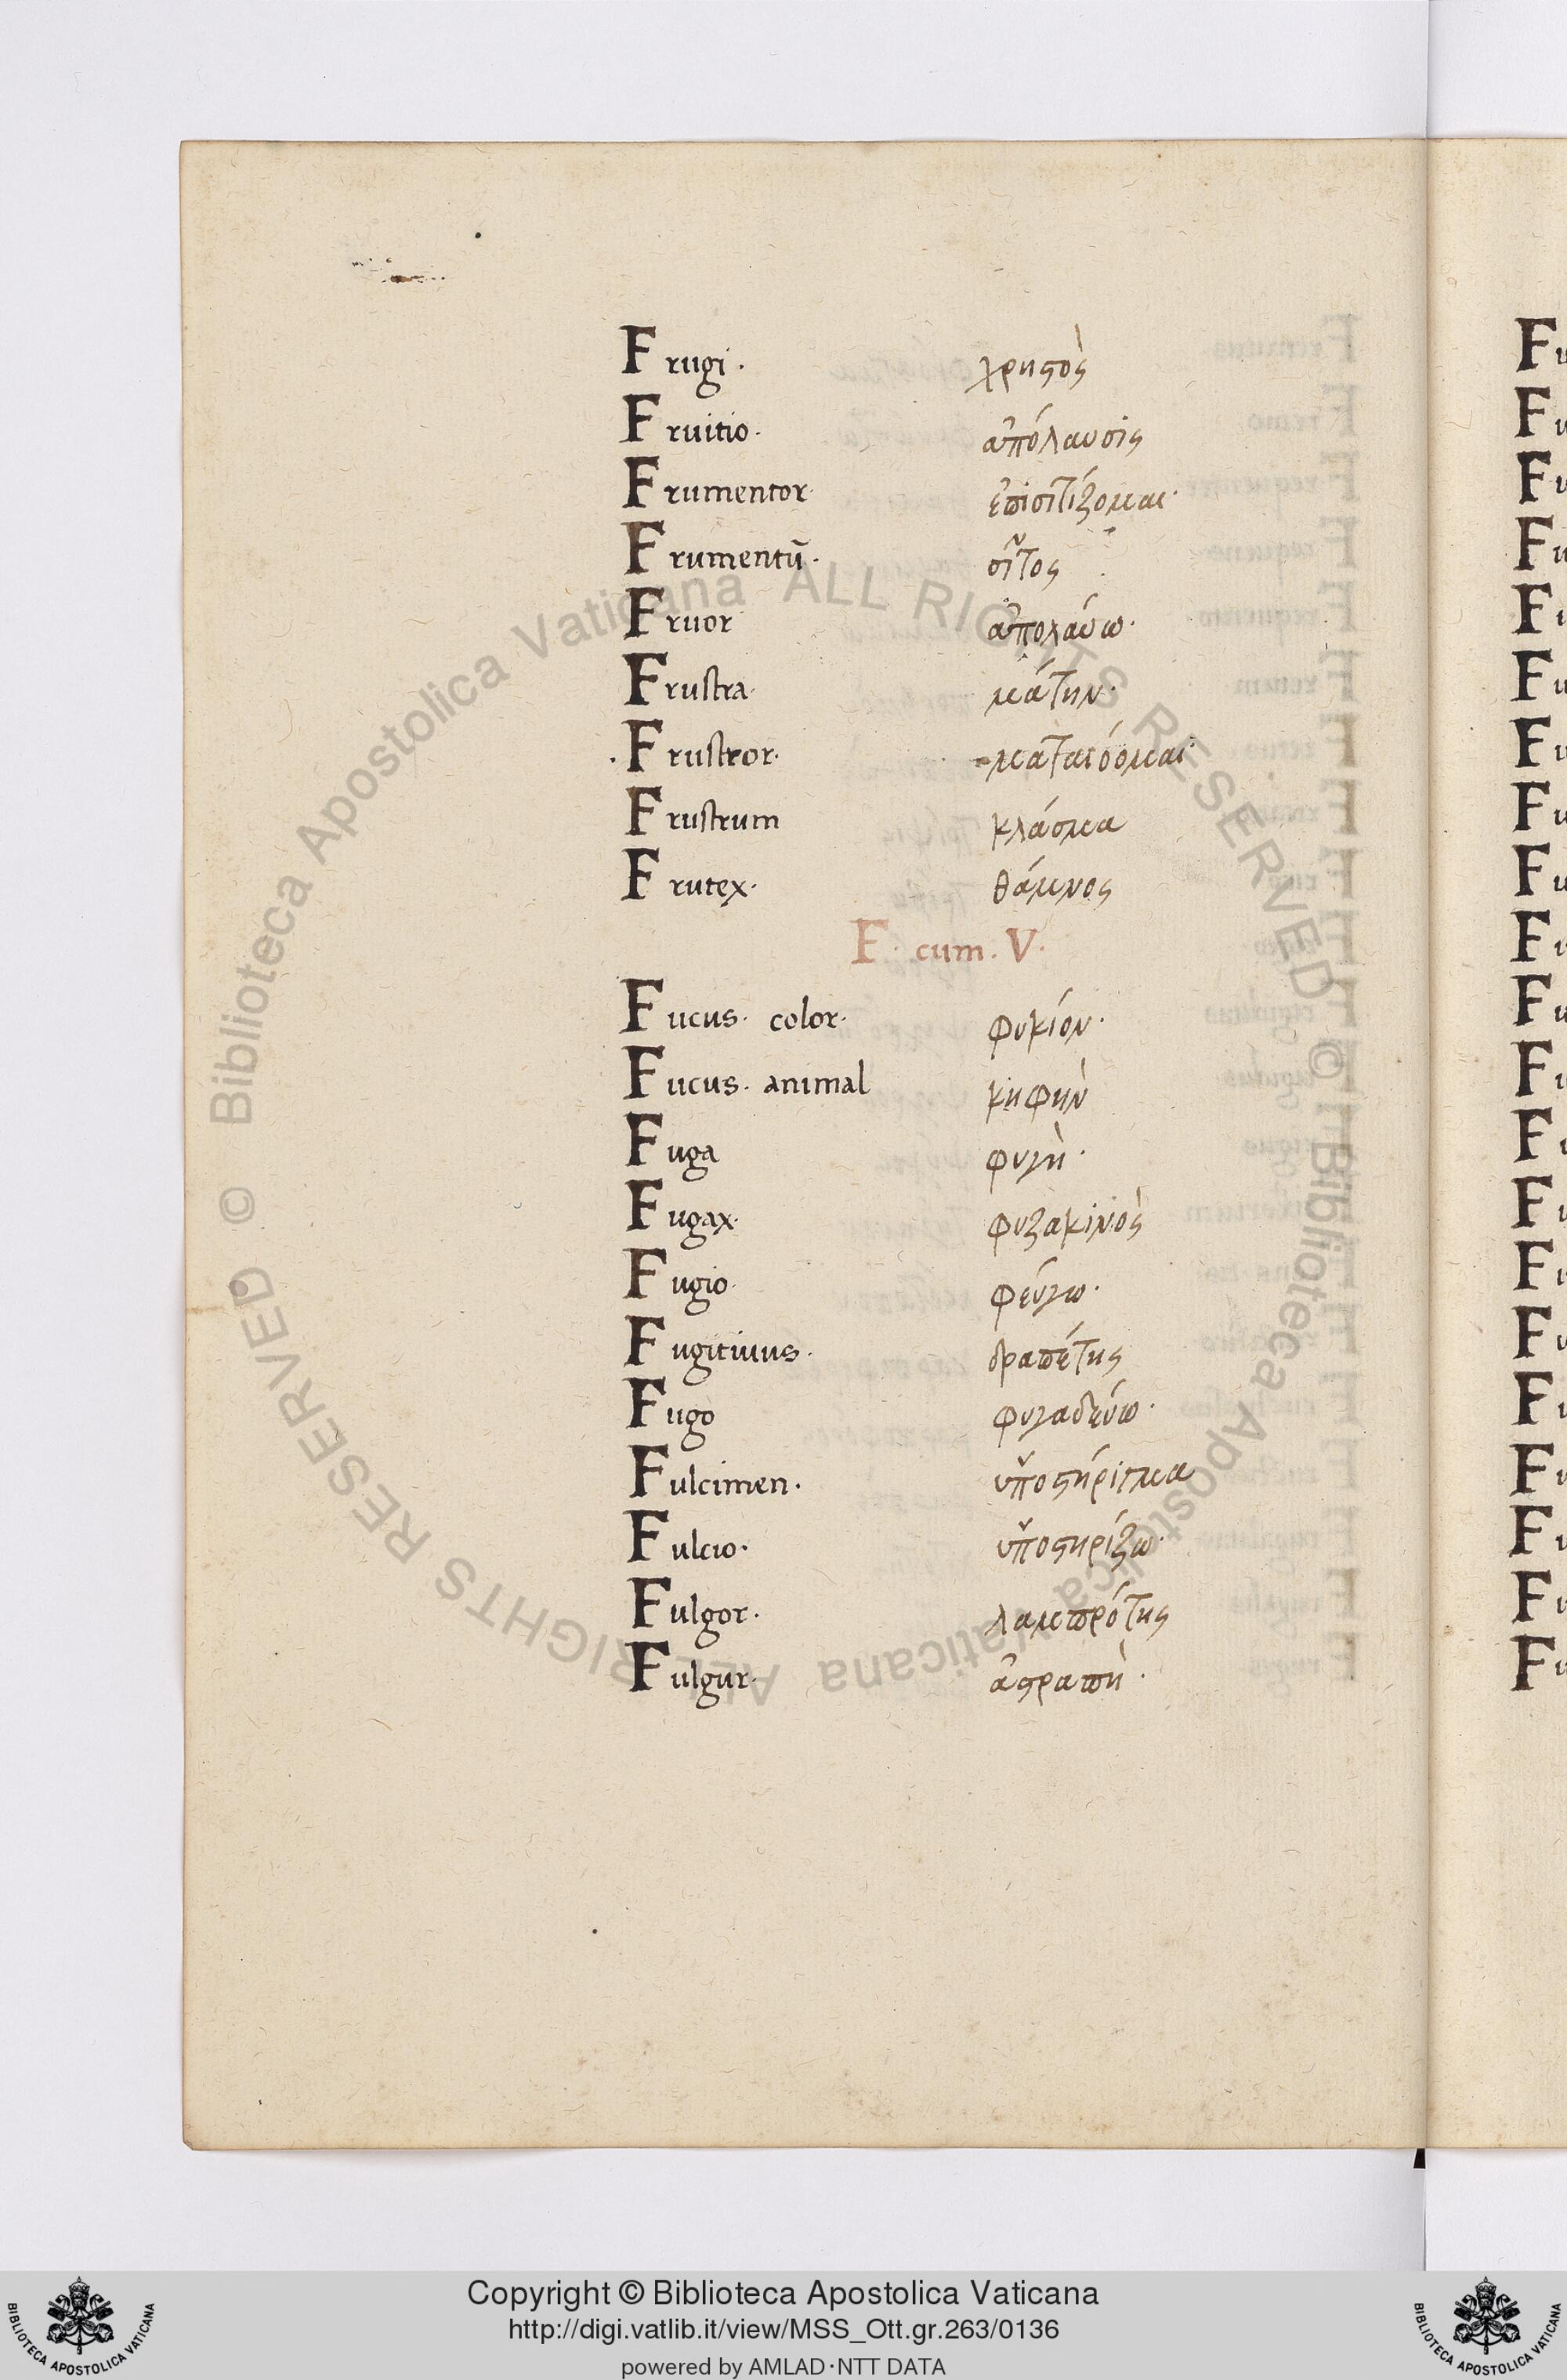 Frugi. χρηστὸς
Fruitio. ἀπόλαυσις
Frumentor. ἐπισιτίζομαι.
Frumentū. σῖτος
Fruor ἀπολάυω.
Frustra. μάτην.
.Frustror. ματαιόομαι.
Frustrum κλάσμα
Frutex. θάμνος
F. cum. V.
Fucus. color. φυκίον.
Fucus. animal κηφὴν
Fuga φυγὴ.
Fugax. φυζακινὸς
Fugio. φέυγω.
Fugitiuus. δραπέτης
Fugo φυγαδέυω.
Fulcimen. ὑποστήριγμα
Fulcio. ὑποστηρίζω.
Fulgor. λαμπρότης
Fulgur. ἀστραπὴ.
© Biblioteca Apostolica Vaticana ALL RIGHTS RESERVED © Biblioteca Apostolica Vaticana ALL RIGHTS RESERVED
Copyright © Biblioteca Apostolica Vaticana
http://digi.vatlib.it/view/MSS_Ott.gr.263/0136
powered by AMLAD·NTT DATA
BIBLIOTECA APOSTOLICA VATICANA
BIBLIOTECA APOSTOLICA VATICANA